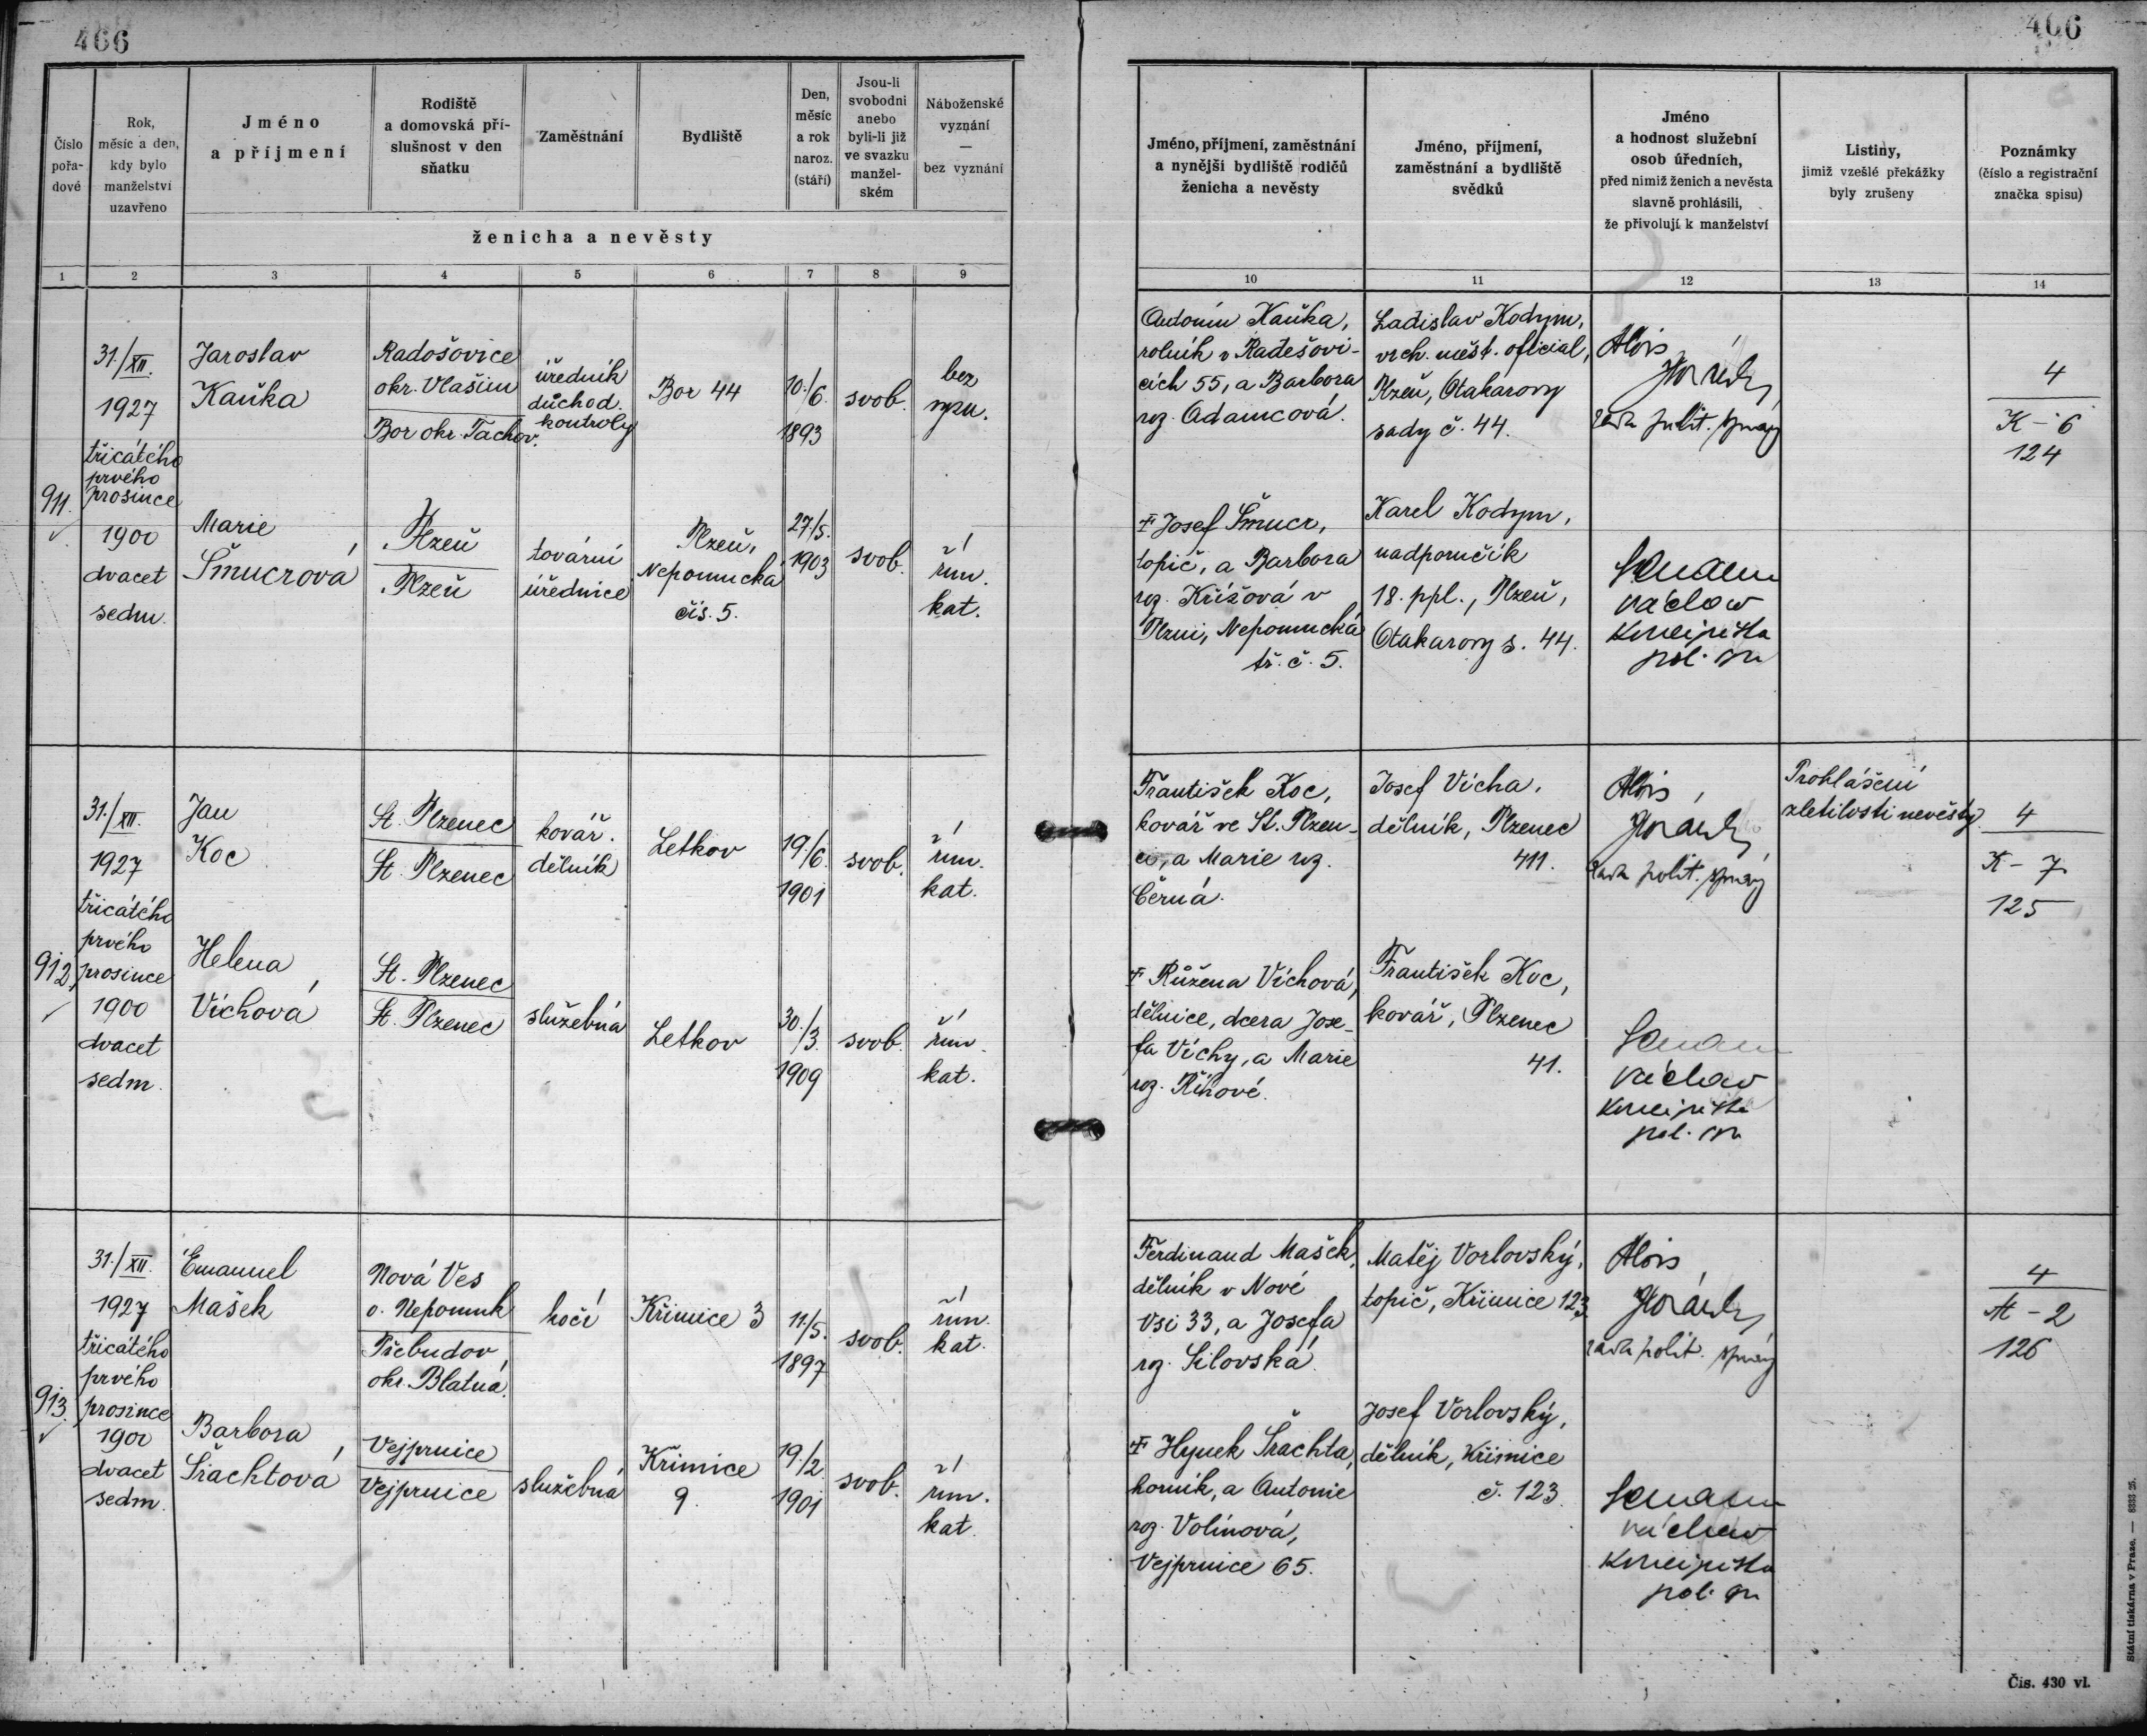 466
466
Číslo
pořa-
dové
Rok,
měsíc a den,
kdy bylo
manželství
uzavřeno
Jméno
a příjmení
Rodiště
a domovská pří-
slušnost v den
sňatku
Zaměstnání
Bydliště
Den,
měsíc
a rok
naroz.
(stáří)
Jsou-li
svobodni
anebo
byli-li již
ve svazku
manžel-
ském
Náboženské
vyznání
—
bez vyznání
ženicha a nevěsty
Jméno, příjmení, zaměstnání
a nynější bydliště rodičů
ženicha a nevěsty
Jméno, příjmení,
zaměstnání a bydliště
svědků
Jméno
a hodnost služební
osob úředních,
před nimiž ženich a nevěsta
slavně prohlásili,
že přivolují k manželství
Listiny,
jimiž vzešlé překážky
byly zrušeny
Poznámky
(číslo a registrační
značka spisu)
1 2 3 4 5 6 7 8 9 10 11 12 13 14
911.
31./XII.
1927
třicátého
prvého
prosince
1900
dvacet
sedm.
Jaroslav
Kaůka
Radošovice
okr. Vlašim
Bor okr. Tachov.
úředník
důchod.
kontroly
Bor 44
10./6.
1893
svob.
bez
vyzn.
Antonín Kaůka,
rolník v Radešovi-
cích 55, a Barbora
roz. Adamcová.
Ladislav Kodym,
vrch. měst. oficial,
Plzeň, Otakarovy
sady č. 44.
Alois
Horák
rada polit. správy
4
K - 6
124
Marie
Šmucrová
Plzeň
Plzeň
tovární
úřednice
Plzeň,
Nepomucká
čís. 5.
27./5.
1903
svob.
řím.
kat.
† Josef Šmucr,
topič, a Barbora
roz. Křížová v
Plzni, Nepomucká
tř. č. 5.
Karel Kodym,
nadporučík
18. ppl., Plzeň,
Otakarovy s. 44.
Václav
koncipista
pol. spr.
912.
31./XII.
1927
třicátého
prvého
prosince
1900
dvacet
sedm.
Jan
Koc
St. Plzenec
St. Plzenec
kovář.
dělník
Letkov
19./6.
1901
svob.
řím.
kat.
František Koc,
kovář ve St. Plzen-
ci, a Marie roz.
Černá.
Josef Vícha,
dělník, Plzenec
411.
Alois
Horák
rada polit. správy
Prohlášení
zletilosti nevěsty.
4
K - 7
125
Helena
Víchová
St. Plzenec
St. Plzenec
služebná
Letkov
30./3.
1909
svob.
řím.
kat.
† Růžena Víchová,
dělnice, dcera Jose-
fa Víchy, a Marie
roz. Říhové.
František Koc,
kovář, Plzenec
41.
Václav
koncipista
pol. spr.
913.
31./XII.
1927
třicátého
prvého
prosince
1900
dvacet
sedm.
Emanuel
Mašek
Nová Ves
o. Nepomuk
Přebudov,
okr. Blatná.
kočí
Křimice 3
11./5.
1897
svob.
řím.
kat.
Ferdinand Mašek,
dělník v Nové
Vsi 33, a Josefa
roz. Silovská.
Matěj Vorlovský,
topič, Křimice 123.
Alois
Horák
rada polit. správy
4
M - 2
126
Barbora
Šrachtová
Vejprnice
Vejprnice
služebná
Křimice
9.
19./2.
1901
svob.
řím.
kat.
† Hynek Šrachta,
horník, a Antonie
roz. Volínová,
Vejprnice 65.
Josef Vorlovský,
dělník, Křimice
č. 123.
Václav
koncipista
pol. spr.
Státní tiskárna v Praze. — 8333 25.
Čís. 430 vl.